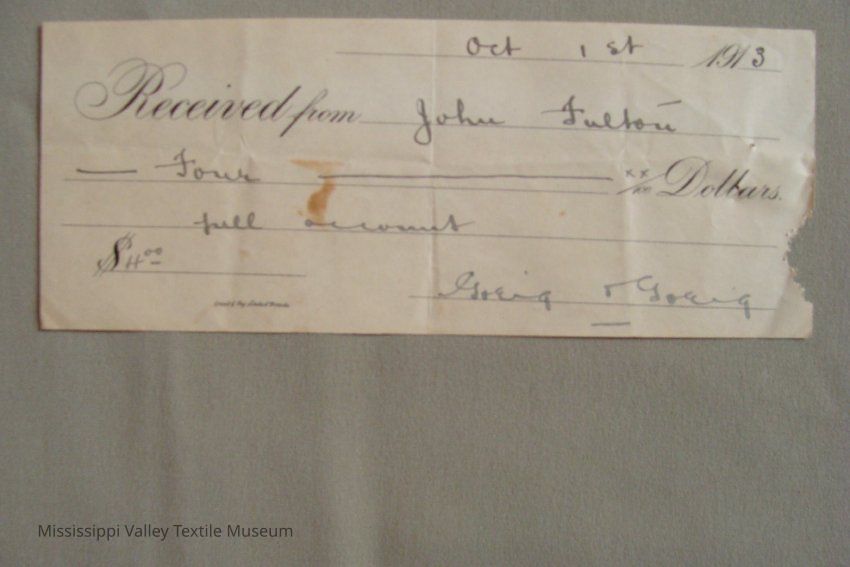 Oct 1st 1913
Received from John Fulton
— Four — xx/100 Dollars.
full account
$4.00
Greig & Greig
Mississippi Valley Textile Museum